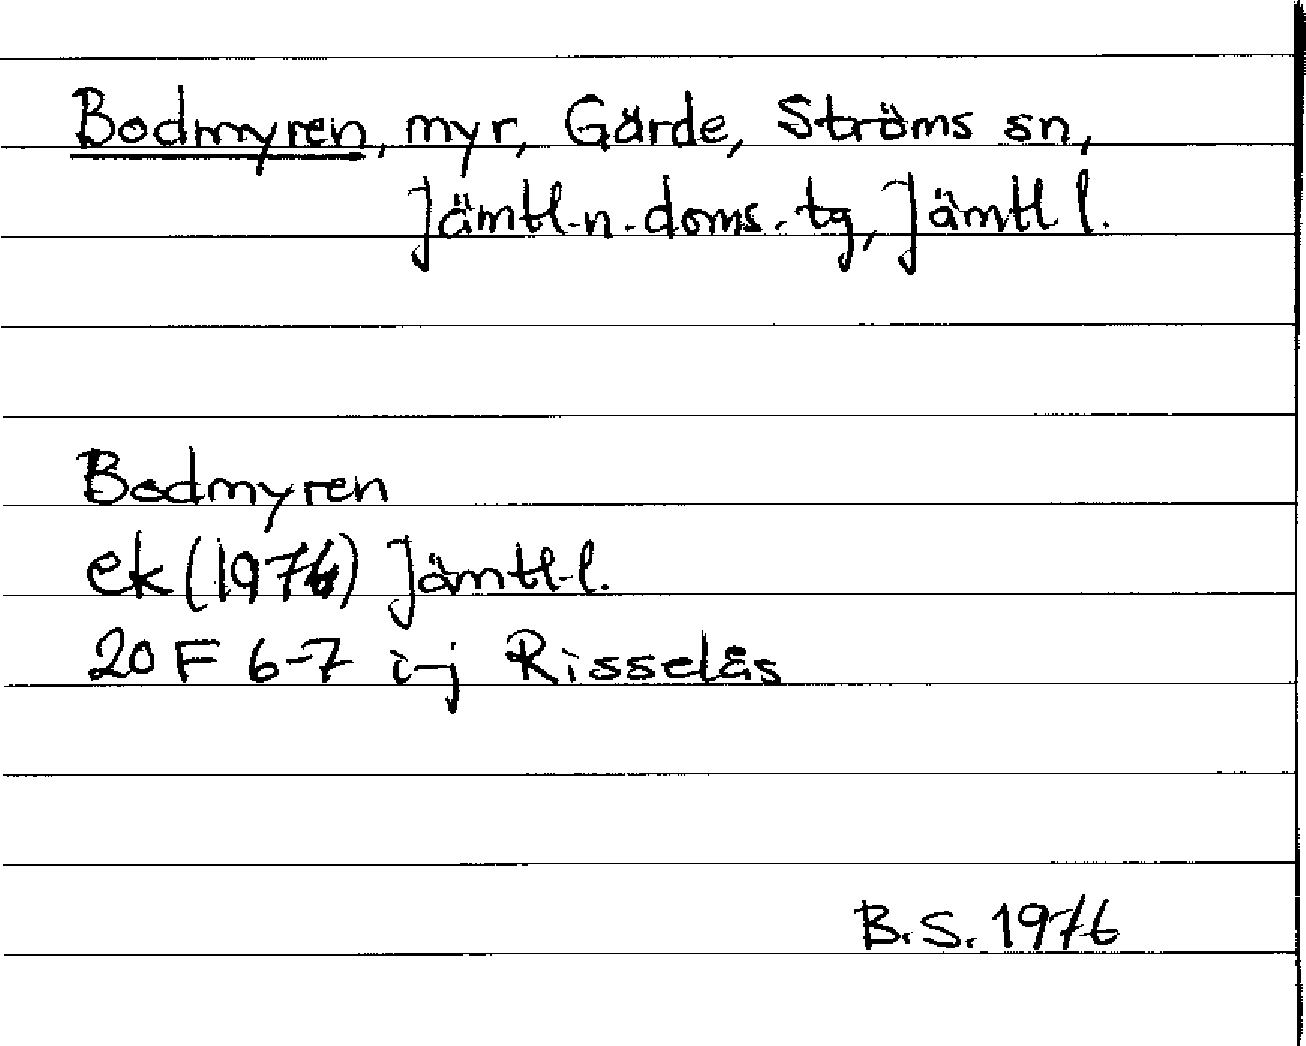 Bodmyren, myr, Gärde, Ströms sn,
Jämtl.n.doms.tg, Jämtl l.
Bodmyren
ek (1976) Jämtl.l.
20 F 6-7 i-j Risselås
B.S. 1976